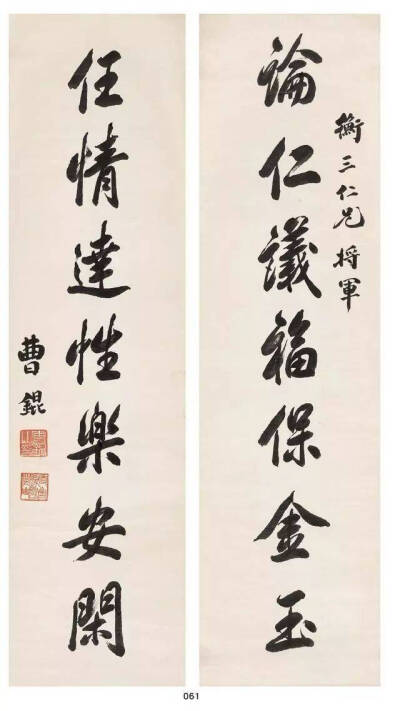 衡三仁兄将軍
論仁議福保金玉
任情達性樂安閑
曹錕
061